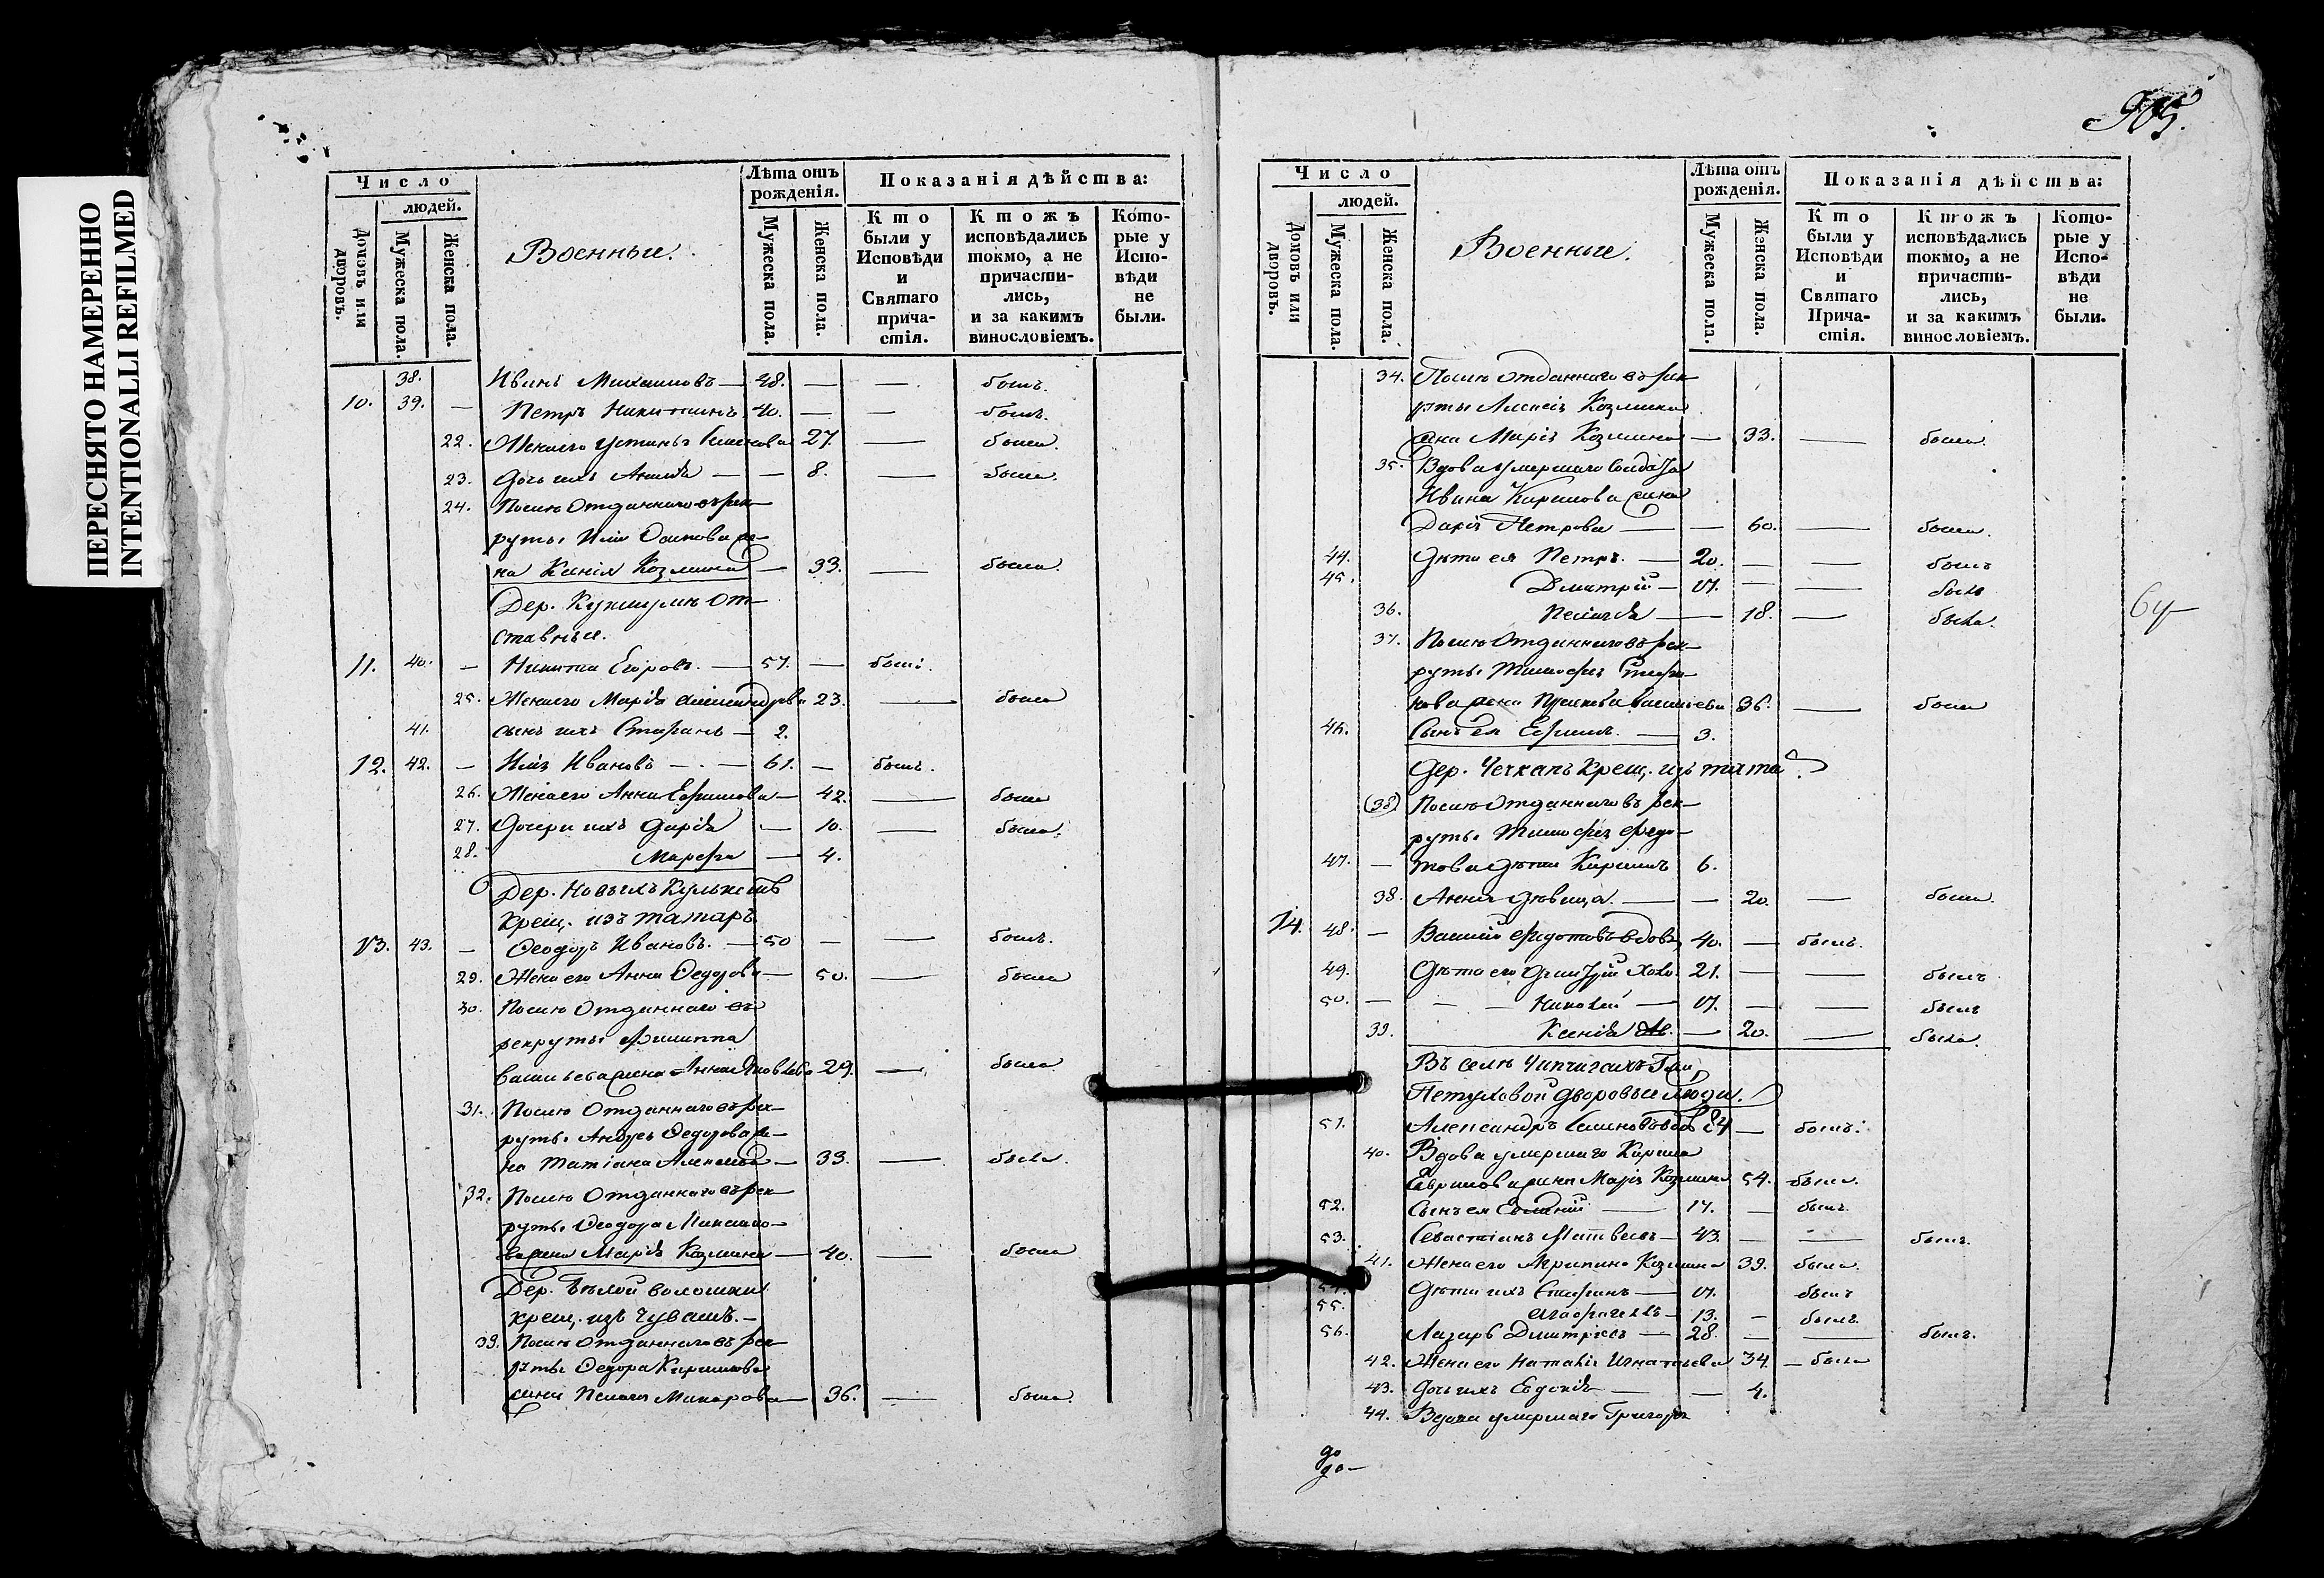 ПЕРЕСНЯТО НАМЕРЕННО
INTENTIONALLI REFILMED
Число
людей.
Домовъ или дворовъ.
Мужеска пола.
Женска пола.
Военные.
Лѣта отъ рожденія.
Мужеска пола.
Женска пола.
Показанія дѣйства:
Кто были у Исповѣди и Святаго причастія.
Ктожъ исповѣдались токмо, а не причастились, и за какимъ винословіемъ.
Которые у Исповѣди не были.
38. Иванъ Михаиловъ — 48. — — былъ.
10. 39. — Петръ Никитинъ 40. — — былъ.
22. Жена его Устинья Семенова 27 — была.
23. Дочь ихъ — — 8. — была.
24. Послѣ Отданнаго въ рек-
руты Ильи же-
на Ксенія Козмина — 33. — была.
Дер. От-
ставные.
11. 40. — Никита Егоровъ. — 57. — былъ.
25. Жена его Марія 23. — была
41. сынъ ихъ Стефанъ — 2.
12. 42. — Илія Ивановъ — . — 61. — былъ.
26. Жена его Анна Ефимова — 42. — была
27. Дочери ихъ Дарія — 10. — была.
28. Марѳа — 4.
Дер. Новыхъ
Крещ. изъ татаръ
13. 43. — Ѳеодоръ Ивановъ. — 50 — — былъ.
29. Жена его Анна Ѳедорова — 50. — была
30. Послѣ Отданнаго въ
рекруты Филиппа
Васильева жена Анна 29. — была
31. Послѣ Отданнаго въ рек-
руты Ѳедорова же-
на Татіана — 33. — была.
32. Послѣ Отданнаго въ рек-
руты Ѳеодора
жена Марія Козмина — 40. — была
Дер. Бѣлой волошки
крещ. изъ Чувашъ. —
33. Послѣ Отданнаго въ рек-
руты Ѳедора Кирилова
жена Макарова — 36. — была.
Число
людей.
Домовъ или дворовъ.
Мужеска пола.
Женска пола.
Военные.
Лѣта отъ рожденія.
Мужеска пола.
Женска пола.
Показанія дѣйства:
Кто были у Исповѣди и Святаго Причастія.
Ктожъ исповѣдались токмо, а не причастились, и за какимъ винословіемъ.
Которые у Исповѣди не были.
34. Послѣ отданнаго въ рек-
руты Алексѣя Козмина
жена Марія Козмина — 33. — была.
35. Вдова умершаго Солдата
Ивана Кирилова жена
Дарія Петрова — — 60. — была.
44. Дѣти ея Петръ. — 20. — — былъ
45. Димитрій — 17. — — былъ
36. Пелагія — 18. — была.
37. Послѣ Отданнаго въ рек-
руты Тимофея Стефа-
нова жена Васильева 36. — была
46. Сынъ ея Ефимъ. — 3.
Дер. Чечкапъ Крещ. изъ татаръ.
(38) Послѣ Отданнаго въ рек-
руты Тимофея Федо-
това дѣти Кирилъ 6.
47. —
38. Анна дѣвица. — — 20. — была.
14. 48. — Василій Федотовъ вдовъ 40. — былъ.
49. Дѣти его Димитрій холо. 21. — — былъ
50. — — — Николай — 17. — — былъ
39. Ксенія — 20. — была.
Въ селѣ Чипчугахъ
Петуховой дворовые люди.
51. Александръ Семеновъ вдовъ — былъ.
40. Вдова умершаго Кирила
жена Марія Козмина 54. была.
52. Сынъ ея 17. — былъ.
53. Севастіанъ Матвеевъ — 43. — — былъ.
41. Жена его Агрипина Козмина 39. была.
Дѣти ихъ Стефанъ — 17. былъ
55. — 13. — былъ.
56. Лазарь Димитріевъ — 28. — — былъ.
42. Жена его Наталія Игнатьева 34. — была
43. Дочь ихъ Евдокія — — 4.
44. Вдова умершаго Григорья